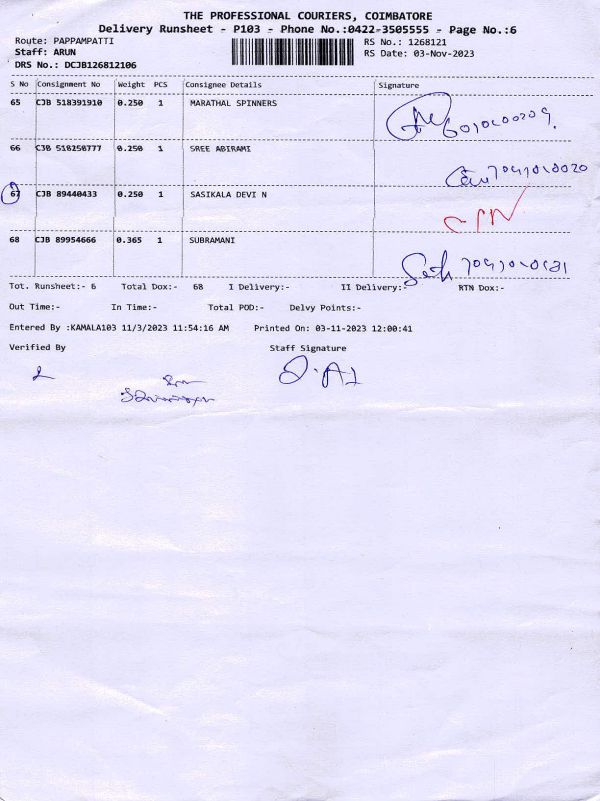 THE PROFESSIONAL COURIERS, COIMBATORE
Delivery Runsheet - P103 - Phone No.:0422-3505555 - Page No.:6
Route: PAPPAMPATTI RS No.: 1268121
Staff: ARUN RS Date: 03-Nov-2023
DRS No.: DCJB126812106
S No Consignment No Weight PCS Consignee Details Signature
65 CJB 518391910 0.250 1 MARATHAL SPINNERS
66 CJB 518258777 0.250 1 SREE ABIRAMI
67 CJB 89440433 0.250 1 SASIKALA DEVI N
68 CJB 89954666 0.365 1 SUBRAMANI
Tot. Runsheet:- 6 Total Dox:- 68 I Delivery:- II Delivery:- RTN Dox:-
Out Time:- In Time:- Total POD:- Delvy Points:-
Entered By :KAMALA103 11/3/2023 11:54:16 AM Printed On: 03-11-2023 12:00:41
Verified By Staff Signature